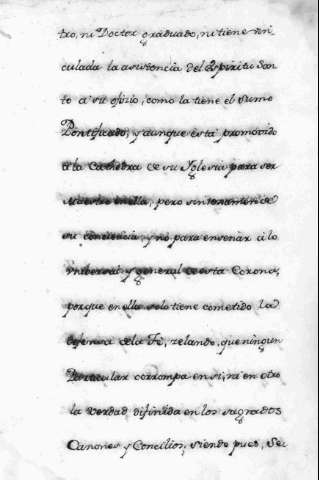 tro, ni Doctor graduado, ni tiene vin
culada la asistencia del Espiritu San
to a su ofizio, como la tiene el Sumo
Pontificado, y aunque està promovido
à la Cathedra de su Yglesia para ser
Maestro en ella, pero sin
su conciencia, y no para enseñar à lo
universal y general de esta Corona,
porque en ella solo tiene cometido la
defensa de la Fé, zelando, que ningun
Particular corrompa en si, ni en otro
la verdad difinida en los sagrados
Canones y Concilios, siendo pues, Se